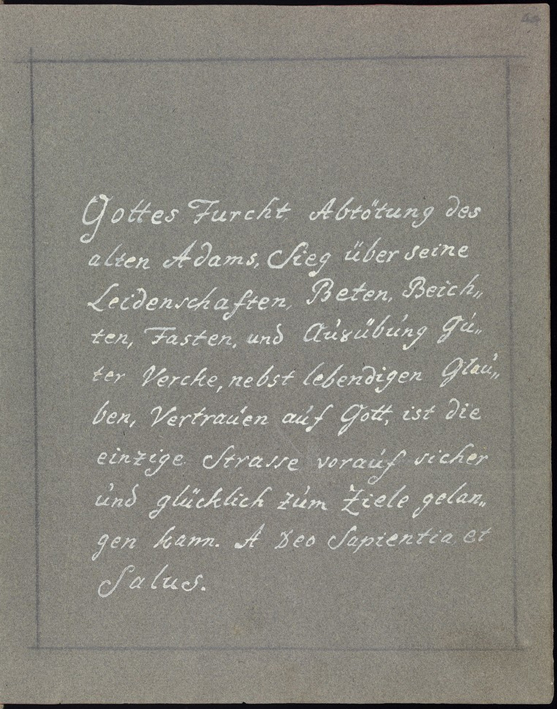 44
Gottes Furcht. Abtötung des
alten Adams, Sieg über seine
Leidenschaften, Beten, Beich„
ten, Fasten, und Ausübung Gu„
ter Vercke, nebst lebendigen Glau„
ben, Vertrauen auf Gott, ist die
einzige Strasse vorauf sicher
und glücklich zum Ziele gelan„
gen kann. A Deo Sapientia et
Salus.